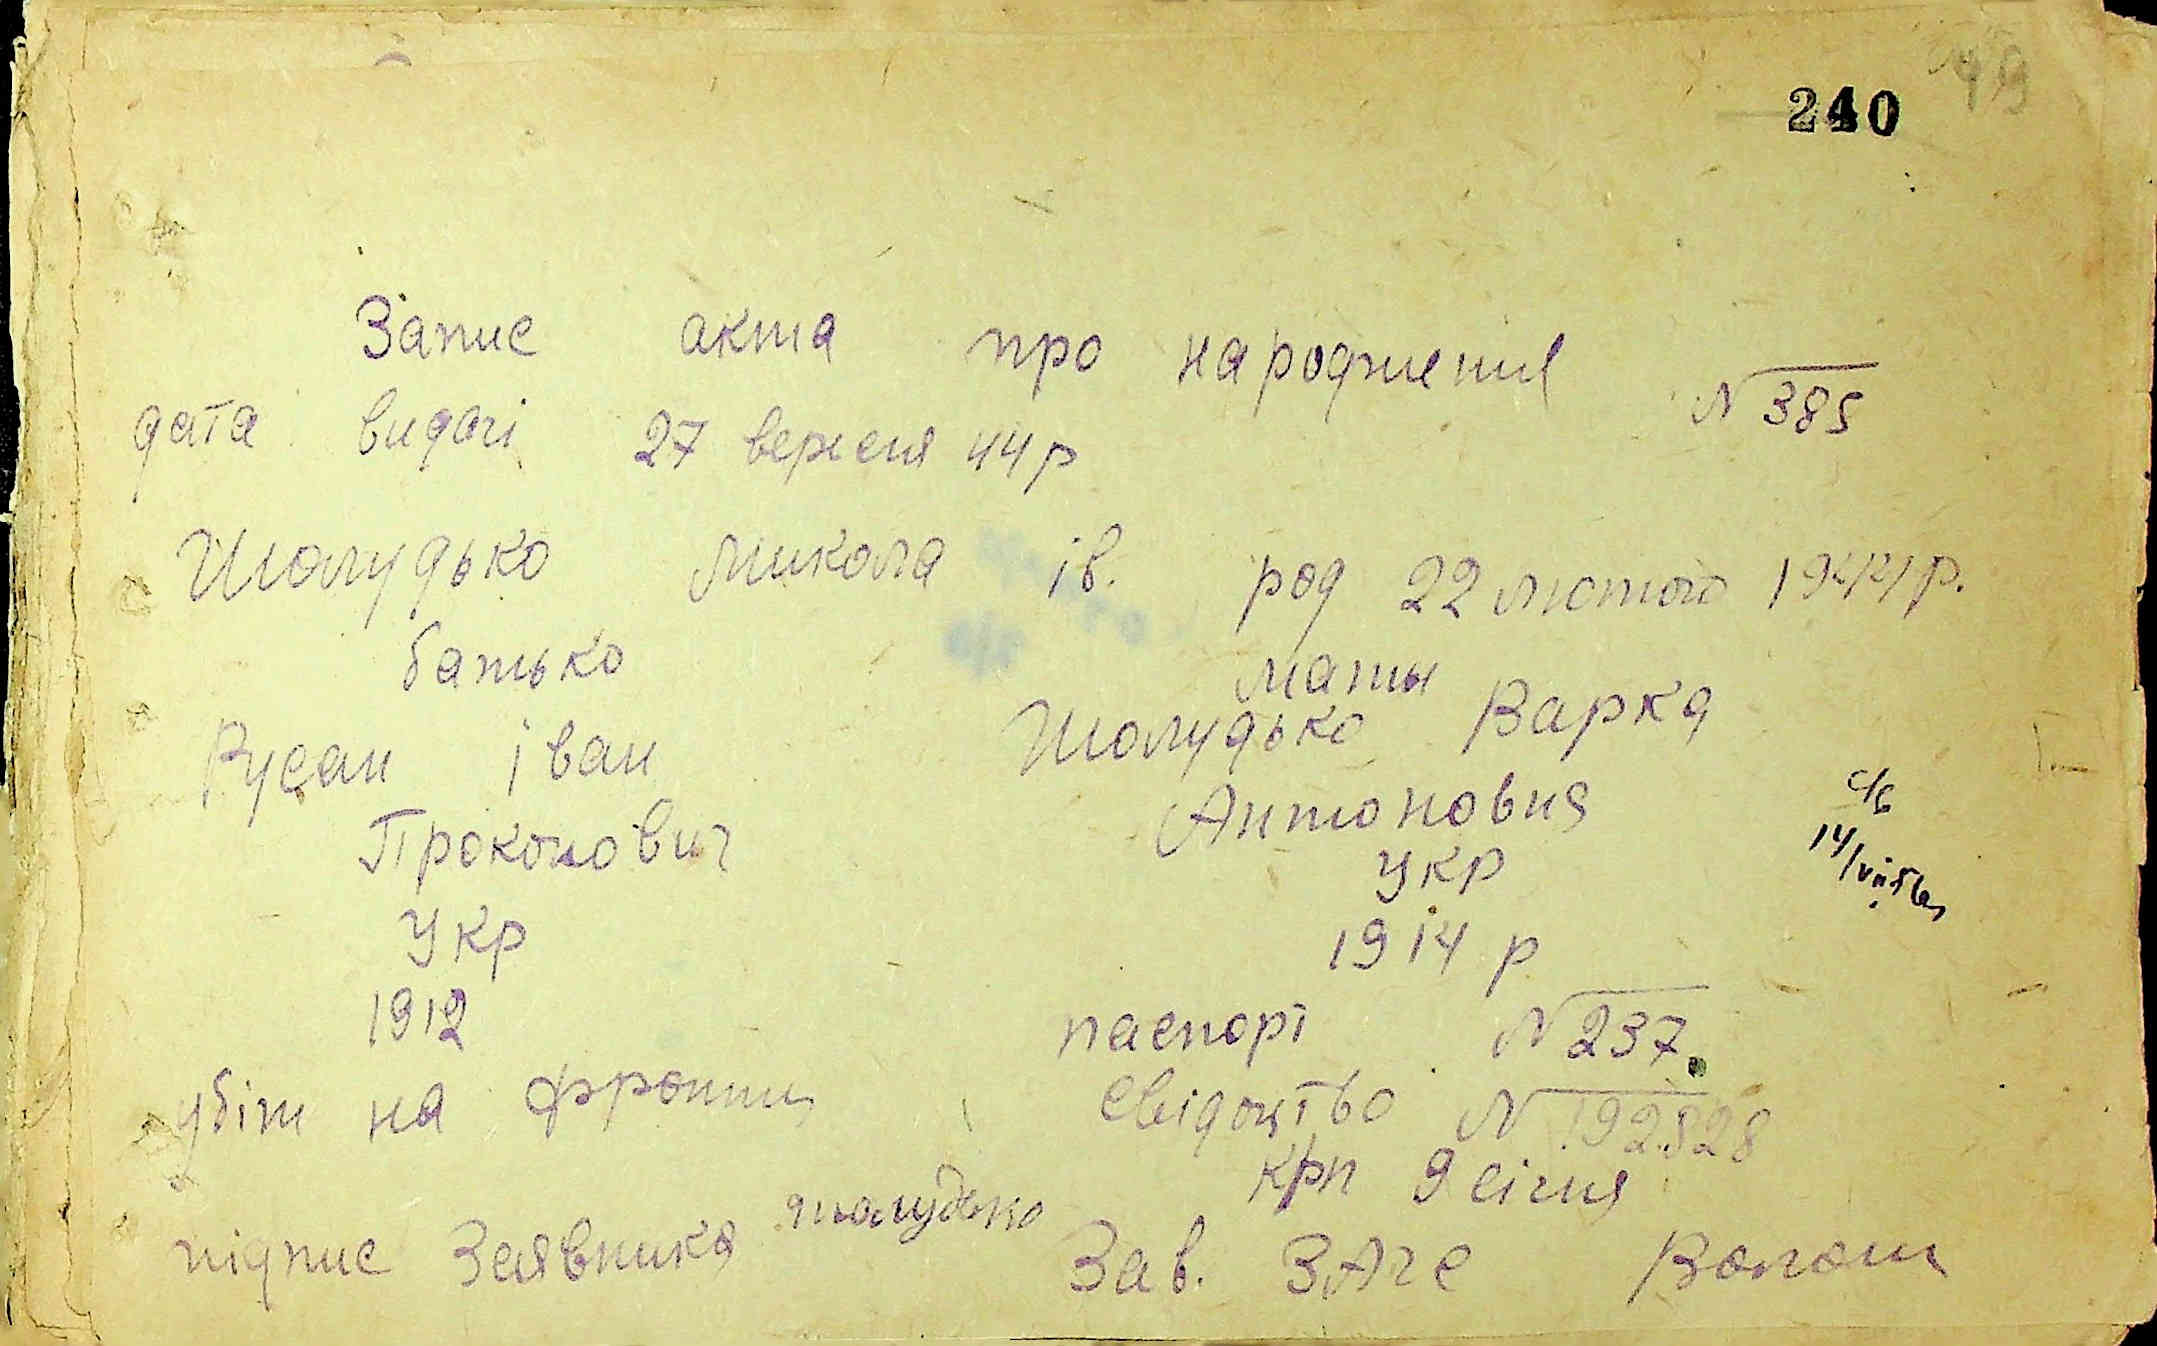 240
49
Запис акта про народження
N 385
дата видачі 27 вересня 44 р
Шолудько Микола ів. род 22 лютого 1944 р.
батько
мати
Русан іван
Шолудько Варка
Прокопович
Антоновна
с/в
14/VII
укр
укр
1912
1914 р
паспорт N 237.
убіт на фронті
свідоцтво N 192828
крп 9 січня
підпис Заявника Шолудько
Зав. ЗАГС Волош